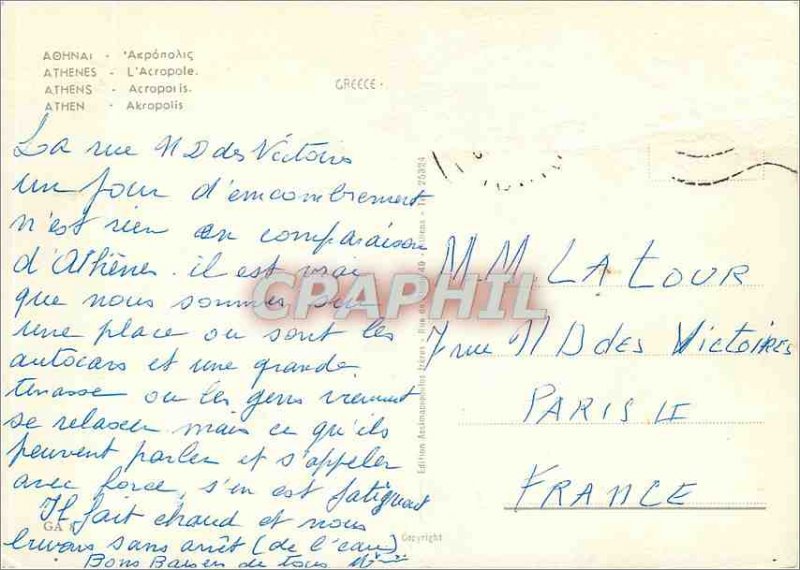 ΑΘΗΝΑΙ - 'Ακρόπολις
ATHENES - L'Acropole.
ATHENS - Acropolis.
ATHEN - Akropolis
GREECE.
La rue ND des Victoires
un jour d'encombrement
n'est rien en comparaison
d'Athènes. il est vrai
que nous sommes sur
une place ou sont les
autocars et une grande
terrasse ou les gens viennent
se relaxer mais ce qu'ils
peuvent parler et s'appeler
avec force, s'en est fatiguant
Il fait chaud et nous
buvons sans arrêt (de l'eau).
Bons Baisers de tous
GA
CPAPHIL
M.M. LATOUR
7 rue ND des Victoires
PARIS II
FRANCE
Copyright